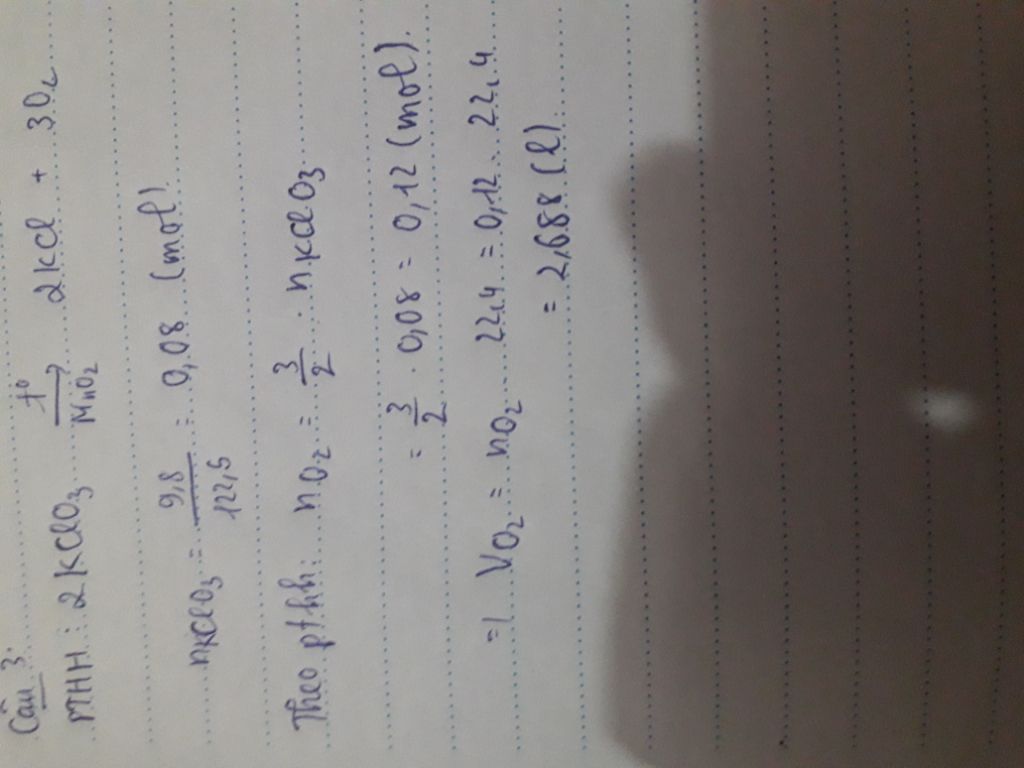 Câu 3:
PTHH: 2KClO3 t° MnO2 2KCl + 3O2
nKClO3 = 9,8 / 122,5 = 0,08 (mol)
Theo pthh: nO2 = 3/2 . nKClO3
= 3/2 . 0,08 = 0,12 (mol).
=) VO2 = nO2 . 22,4 = 0,12 . 22,4
= 2,688 (l)